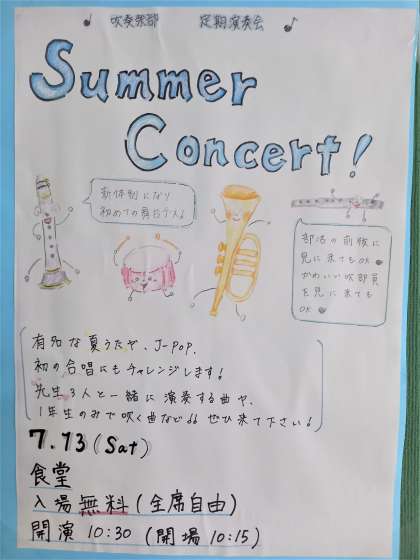 吹奏楽部 定期演奏会
Summer
Concert!
新体制になり
初めての舞台デス♪
部活の前後に
見に来てもOK
かわいい吹部員
を見に来ても
OK
有名な夏うたや、J-POP、
初の合唱にもチャレンジします!
先生3人と一緒に演奏する曲や、
1年生のみで吹く曲など♪♪ ぜひ来て下さい!
7.13(Sat)
食堂
入場無料(全席自由)
開演 10:30 (開場 10:15)